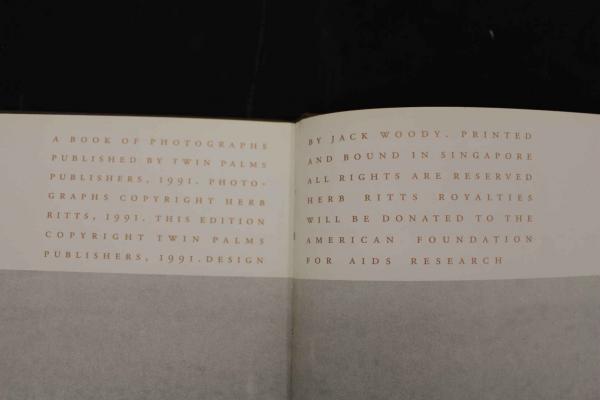 A BOOK OF PHOTOGRAPHS
PUBLISHED BY TWIN PALMS
PUBLISHERS, 1991. PHOTO-
GRAPHS COPYRIGHT HERB
RITTS, 1991. THIS EDITION
COPYRIGHT TWIN PALMS
PUBLISHERS, 1991. DESIGN
BY JACK WOODY. PRINTED
AND BOUND IN SINGAPORE
ALL RIGHTS ARE RESERVED
HERB RITTS ROYALTIES
WILL BE DONATED TO THE
AMERICAN FOUNDATION
FOR AIDS RESEARCH